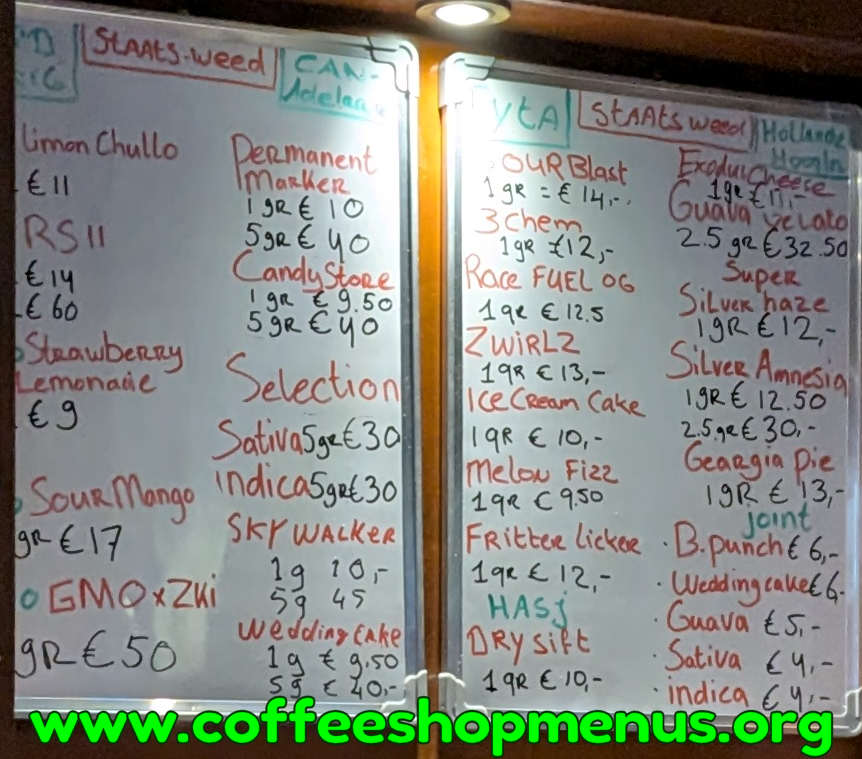 STAATS-weed
CAN-
Adelaar
Limon Chullo
€ 11
RS11
€ 14
€ 60
Strawberry
Lemonade
€ 9
Sour Mango
gr € 17
GMO x Zki
gR € 50
Permanent
Marker
1 gR € 10
5 gR € 40
Candy Store
1 gR € 9.50
5 gR € 40
Selection
Sativa 5gr € 30
Indica 5gR € 30
SKY WALKER
1g 10,-
5g 45
Wedding Cake
1g € 9,50
5g € 40,-
STAATS weed
OUR Blast
1 gR = € 14,-
3 Chem
1 gR €12,-
Race FUEL OG
1 gR € 12.5
ZWIRLZ
1 gR € 13,-
Ice Cream Cake
1 gR € 10,-
Melow Fizz
1 gR € 9.50
Fritter Licker
1 gR € 12,-
HASj
DRY Sift
1 gR € 10,-
Exodus Cheese
1 gR € 11,-
Guava Gelato
2.5 gR € 32.50
Super
Silver haze
1 gR € 12,-
Silver Amnesia
1 gR € 12.50
2.5 gR € 30,-
Geargia Pie
1 gR € 13,-
joint
· B.punch € 6,-
· Wedding cake € 6,-
· Guava € 5,-
· Sativa € 4,-
· indica € 4,-
www.coffeeshopmenus.org